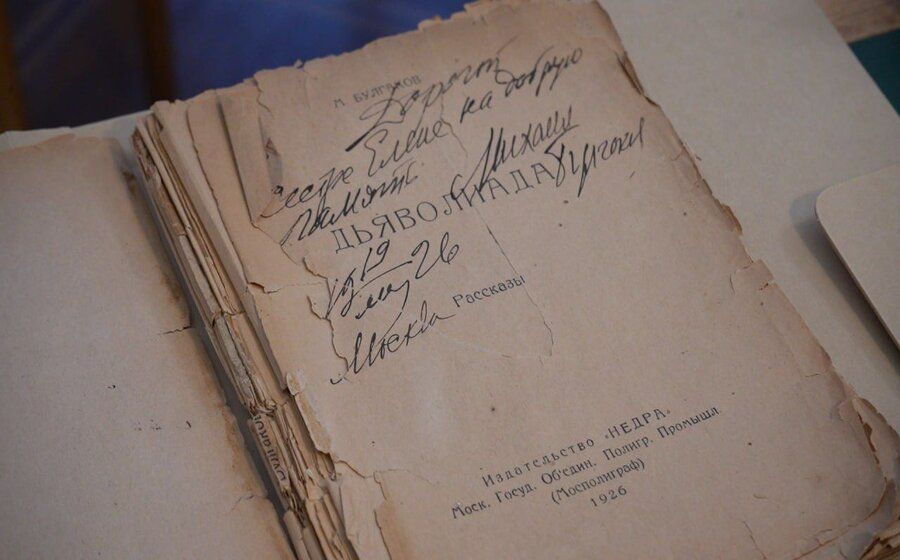 М. БУЛГАКОВ
Дорогой
сестре Елене на добрую
память. Михаил
Булгаков
ДЬЯВОЛИАДА
19
26
Москва
Рассказы
Издательство «НЕДРА»
Моск. Госуд. Об'един. Полигр. Промышл.
(Мосполиграф)
1926